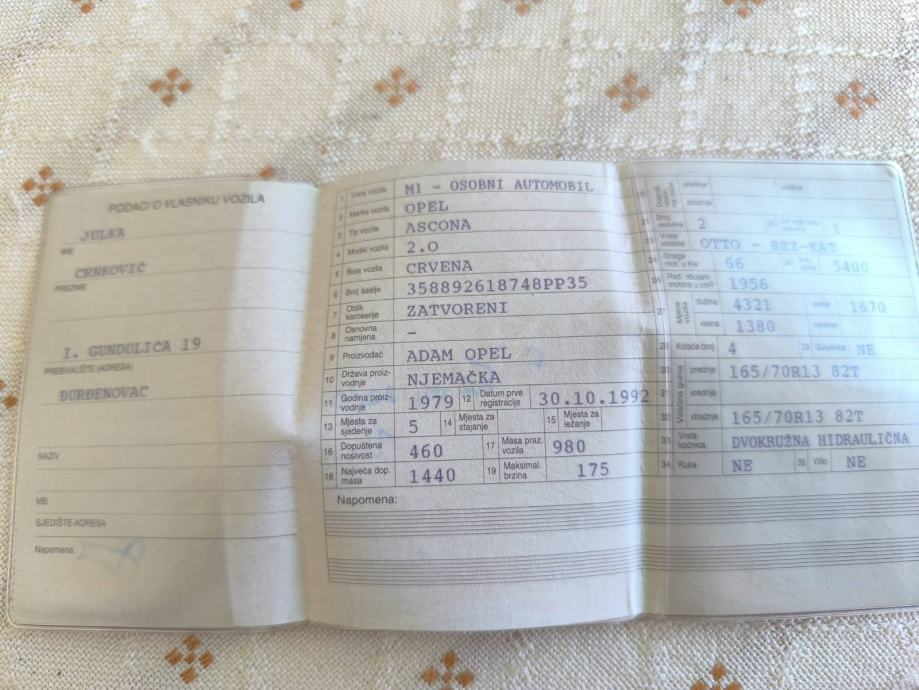 PODACI O VLASNIKU VOZILA
JULKA
IME
CRNKOVIČ
PREZIME
I. GUNDULIĆA 19
PREBIVALIŠTE (ADRESA)
ĐURĐENOVAC
NAZIV
MB
SJEDIŠTE-ADRESA
Napomena:
1 Vrsta vozila M1 - OSOBNI AUTOMOBIL
2 Marka vozila OPEL
3 Tip vozila ASCONA
4 Model vozila 2.0
5 Boja vozila CRVENA
6 Broj šasije 358892618748PP35
7 Oblik karoserije ZATVORENI
8 Osnovna namjena -
9 Proizvođač ADAM OPEL
10 Država proizvodnje NJEMAČKA
11 Godina proizvodnje 1979 12 Datum prve registracije 30.10.1992
13 Mjesta za sjedenje 5 14 Mjesta za stajanje 15 Mjesta za ležanje
16 Dopuštena nosivost 460 17 Masa praz. vozila 980
18 Najveća dop. masa 1440 19 Maksimal. brzina 175
Napomena:
prednje
stražnje
Broj osovina 2 1
23 Vrsta motora OTTO - BEZ-KAT
24 Snaga mot. u Kw 66 5400
Rad. obujam motora u cm3 1956
27 Mjere vozila dužina 4321 širina 1670
visina 1380
28 Kotača broj 4 29 Gusjenice NE
30 Veličina guma prednje 165/70R13 82T
31 srednje
32 stražnje 165/70R13 82T
33 Vrsta kočnica DVOKRUŽNA HIDRAULIČNA
34 Kuka NE 35 Vitlo NE